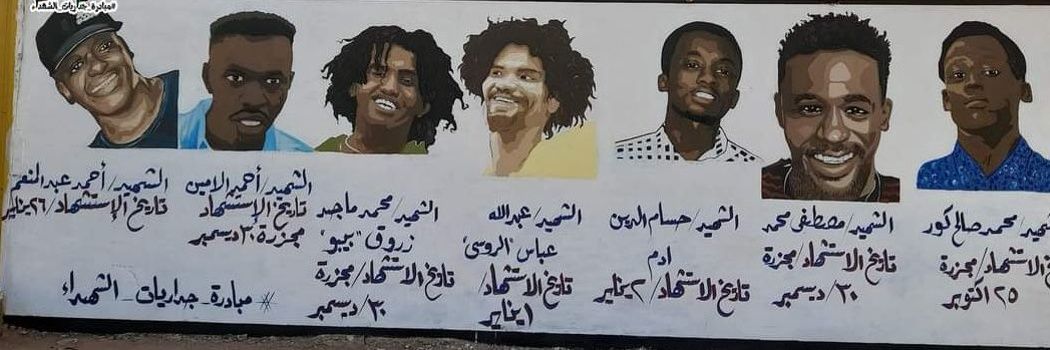 #مبادرة_جداريات_الشهداء
الشهيد/محمد صالح كور
تاريخ الاستشهاد/مجزرة
٢٥ اكتوبر
الشهيد/مصطفى محمد
تاريخ الاستشهاد/مجزرة
٣٠/ديسمبر
الشهيد/حسام الدين
ادم
تاريخ الاستشهاد/٢ يناير
الشهيد/عبدالله
عباس "الروسي"
تاريخ الاستشهاد/
١ يناير
الشهيد/محمد ماجد
زروق "بيبو"
تاريخ الاستشهاد/مجزرة
٣٠/ديسمبر
الشهيد/أحمد الامين
تاريخ الإستشهاد
مجزرة ٣٠ ديسمبر
الشهيد/أحمد عبدالمنعم
تاريخ الإستشهاد/٢٦ يناير
# مبادرة_جداريات_الشهداء